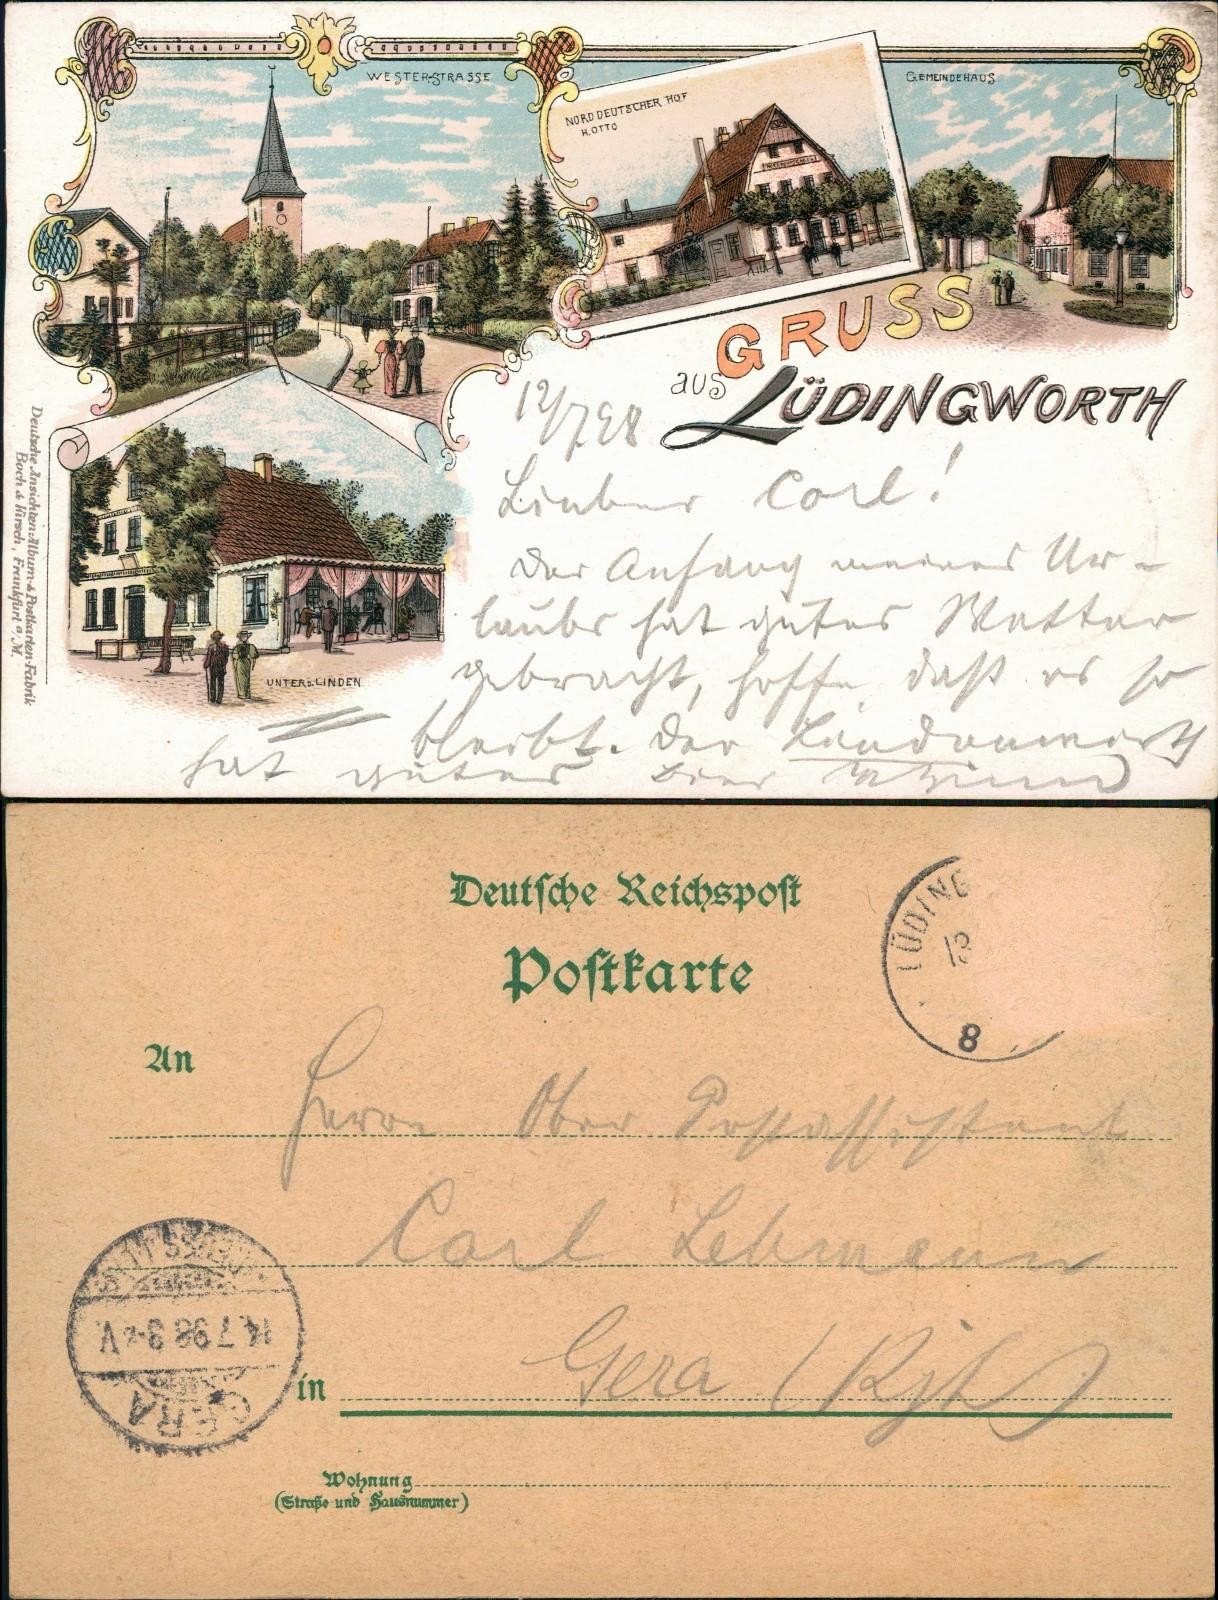 WESTER-STRASSE
NORDDEUTSCHER HOF
H. OTTO
GEMEINDEHAUS
GRUSS
aus
LÜDINGWORTH
12/7 98
Lieber Carl!
Der Anfang meines Ur-
laubs hat gutes Wetter
gebracht, hoffe, daß es so
bleibt. Der Lindenwirth
hat gutes Bier
UNTER D. LINDEN
Deutsche Ansichten-Album- & Postkarten-Fabrik
Boch & Kirsch, Frankfurt a/M.
Deutsche Reichspost
Postkarte
LÜDING
12
8
An
Herrn Ober Postassistent
Carl Lehmann
in Gera (Rjl)
Wohnung
(Straße und Hausnummer)
14.7.98 8-9 V.
GERA